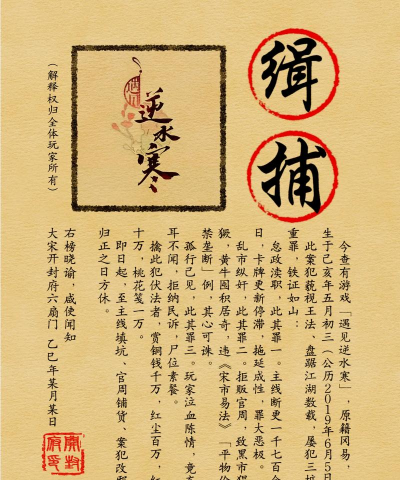 缉
捕
逆水寒
今查有游戏「遇见逆水寒」，原籍网易，
生于己亥年五月初三（公历2019年6月5日
此案犯藐视王法、盘踞江湖数载，屡犯三
重罪，铁证如山：
怠政渎职，此其罪一。主线断更一千七百
日，卡牌更新停滞，拖延成性，罪大恶极。
乱市纵奸，此其罪二。拒贩官周，致黑市猖
獗，黄牛囤积居奇，违《宋市易法》「平物价
禁垄断」例，其心可诛。
孤行己见，此其罪三。玩家泣血陈情，竟充
耳不闻，拒纳民诉，尸位素餐。
擒此犯伏法者，赏铜钱千万，红尘百万，
十万，桃花笺一万。
即日起，至主线填坑、官周铺货、案犯改邪
归正之日方休。
右榜晓谕，咸使闻知
大宋开封府六扇门 乙巳年某月某日
（解释权归全体玩家所有）
开封府印